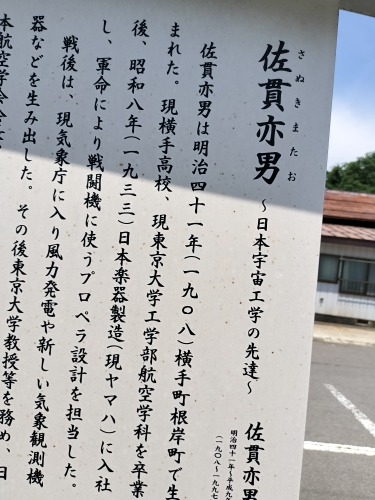 さぬきまたお
佐貫亦男 ～日本宇宙工学の先達～
佐貫亦男は明治四十一年(一九〇八)横手町根岸町で生
まれた。現横手高校、現東京大学工学部航空学科を卒業
後、昭和八年(一九三三)日本楽器製造(現ヤマハ)に入社
し、軍命により戦闘機に使うプロペラ設計を担当した。
戦後は、現気象庁に入り風力発電や新しい気象観測機
器などを生み出した。その後東京大学教授等を務め、日
本航空学会会
佐貫亦男
明治四十一年～平成九
(一九〇八～一九九七